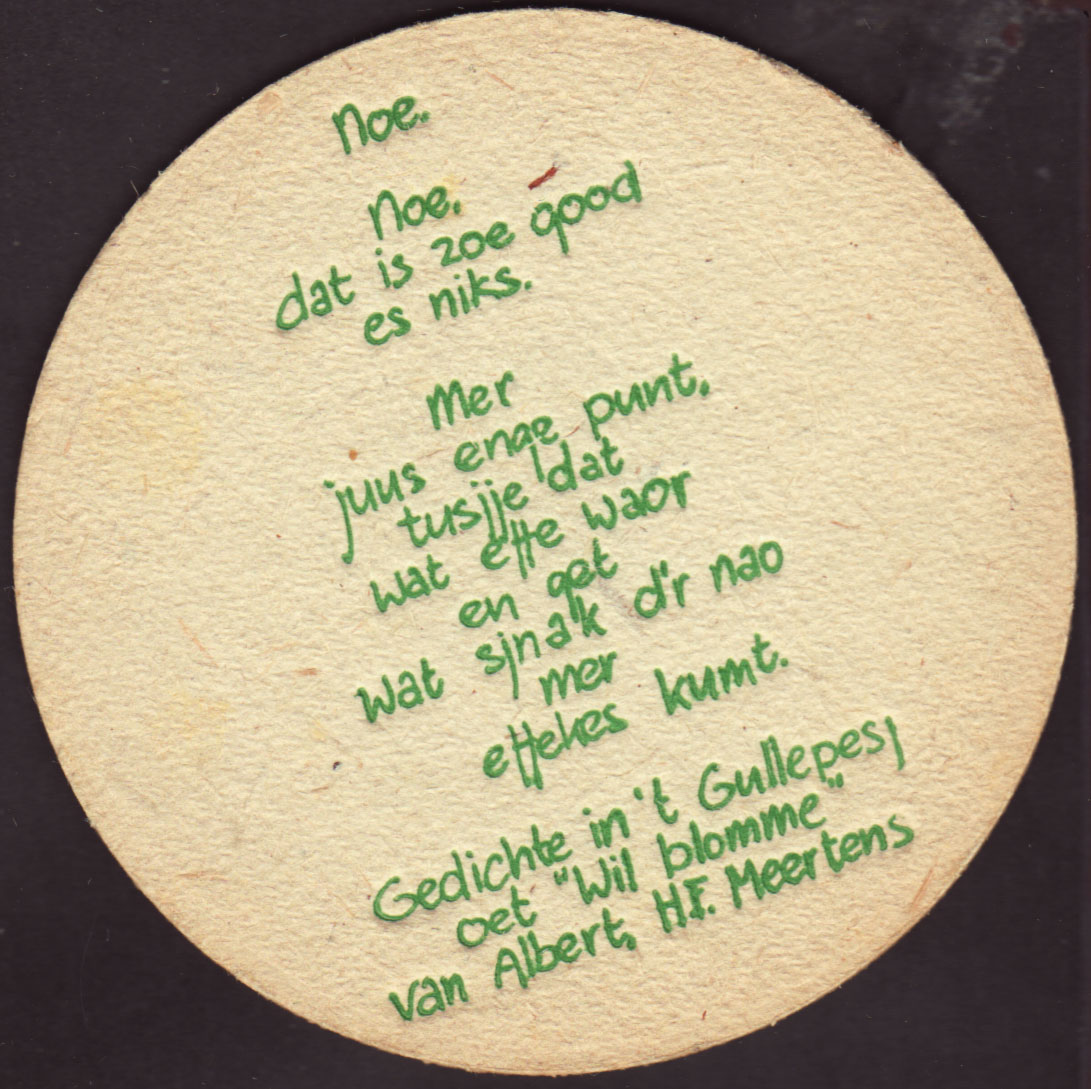 Noe.
Noe.
dat is zoe good
es niks.
Mer
juus enge punt,
tusjje dat
wat effe waor
en get
wat sjnak d'r nao
mer
effekes kumt.
Gedichte in 't Gullepesj
oet "Wil blomme"
van Albert, H.F. Meertens